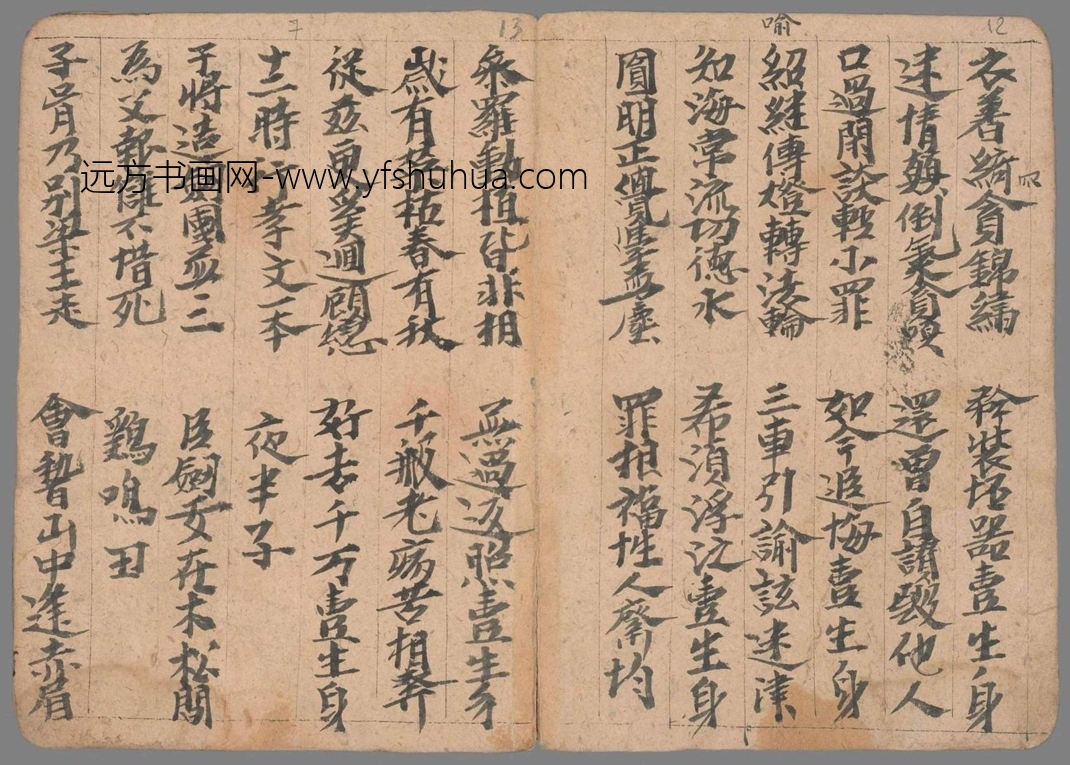 12
衣著綺羅貪錦繡 矜裝坯器壹生身
迷情顛倒氣貪嗔 還曾自讃毀他人
口過閑談輕小罪 如今追悔壹生身
喻
紹継傳燈轉法輪 三車引諭詃迷津
知海常流功德水 希湏浮泛壹生身
圓明正覺 塵 罪相福性人 均
13
森羅動植皆非相 無過返照壹生身
歲有 枯春有秋 千般老病苦相奔
從茲 迴顧戀 好去千万壹生身
7
十二時行孝文一本 夜半子
子將造 國 三 臣劒 在木松間
為父報讎不惜死 鷄鳴丑
子胥乃別 主走 會 山中逢赤眉
远方书画网-www.yfshuhua.com